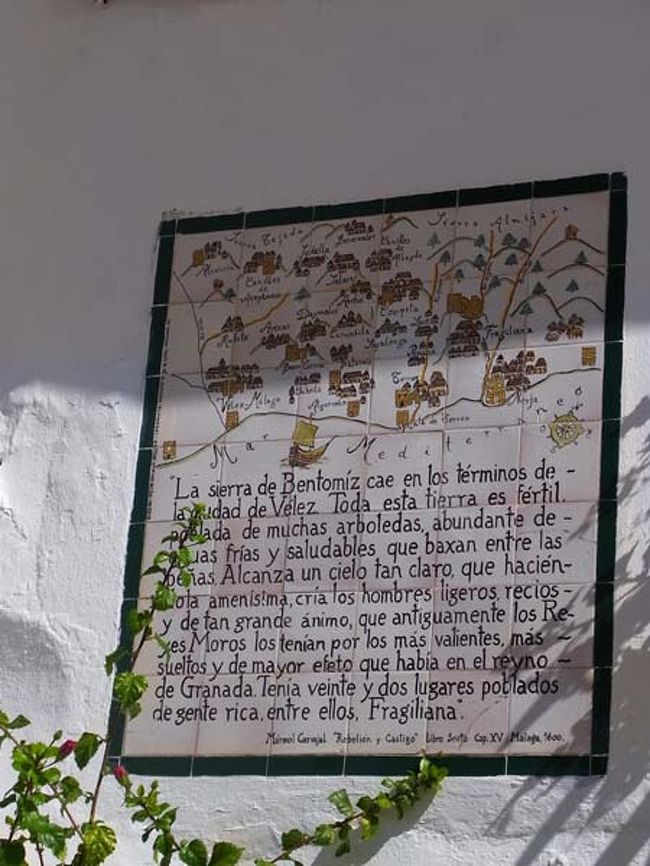 Sierra Tejeda
Sierra Almijara
Sedella
Salares
Daymalos
Arenas
Competa
Sayalonga
Fragiliana
Velez-Malaga
Algarrobo
Torrox
Nerja
Mar Mediterraneo
"La sierra de Bentomíz cae en los términos de -
la ciudad de Vélez. Toda esta tierra es fértil.
poblada de muchas arboledas, abundante de -
aguas frías y saludables, que baxan entre las
peñas. Alcanza un cielo tan claro, que hacién-
dola amenísima, cría los hombres ligeros, recios -
y de tan grande ánimo, que antiguamente los Re-
yes Moros los tenían por los más valientes, más -
sueltos y de mayor efeto que había en el reyno -
de Granada. Tenía veinte y dos lugares poblados
de gente rica, entre ellos, Fragiliana".
Marmol Carvajal "Rebelión y Castigo" Libro Sexto Cap. XV Málaga, 1600.